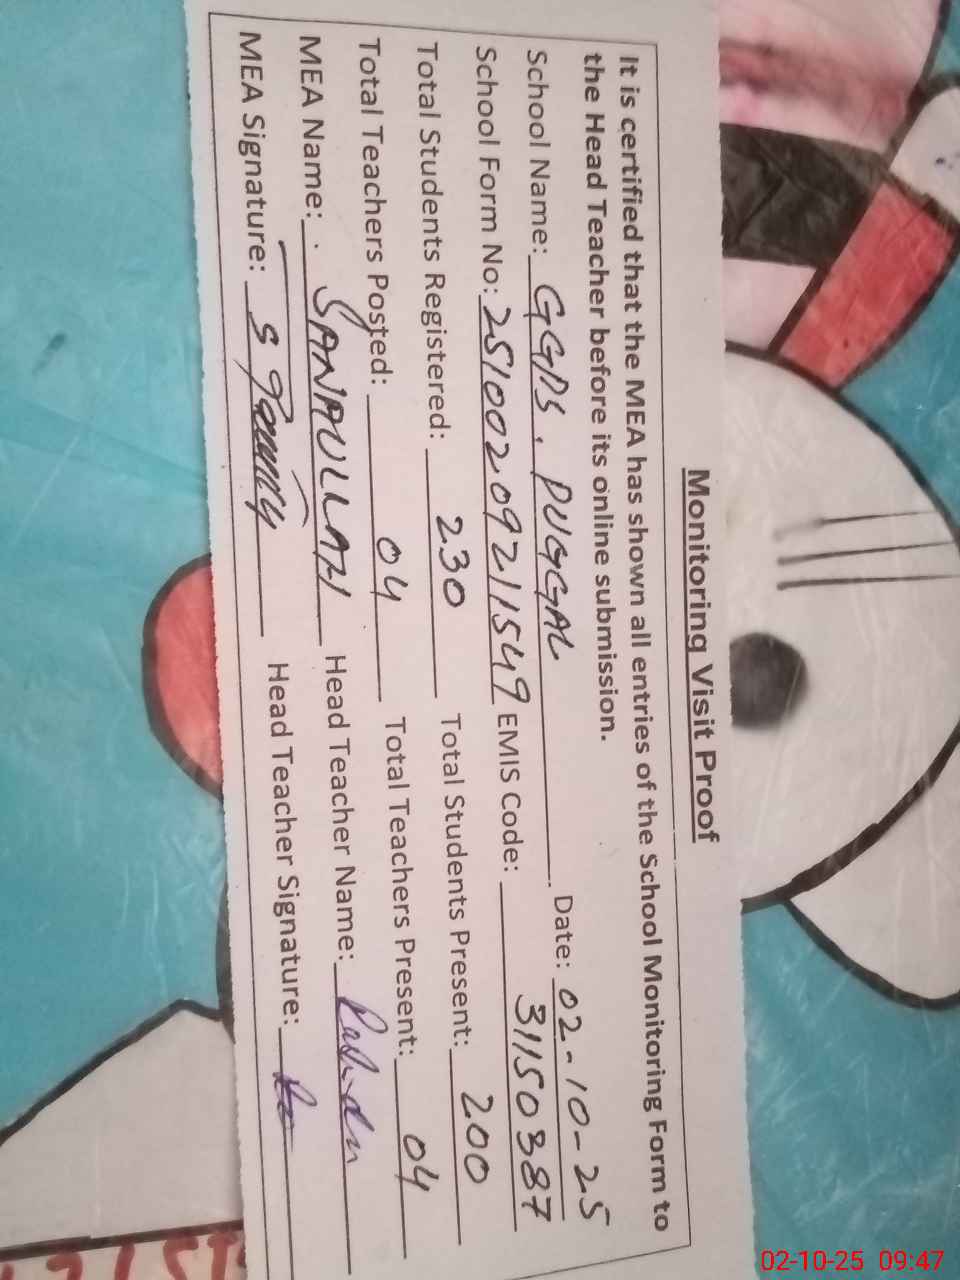 Monitoring Visit Proof
It is certified that the MEA has shown all entries of the School Monitoring Form to
the Head Teacher before its online submission.
School Name: GGPS. DUGGAL Date: 02-10-25
School Form No: 25100209211549 EMIS Code: 31150387
Total Students Registered: 230 Total Students Present: 200
Total Teachers Posted: 04 Total Teachers Present: 04
MEA Name: SANAULLAH Head Teacher Name:
MEA Signature: Head Teacher Signature:
02-10-25 09:47